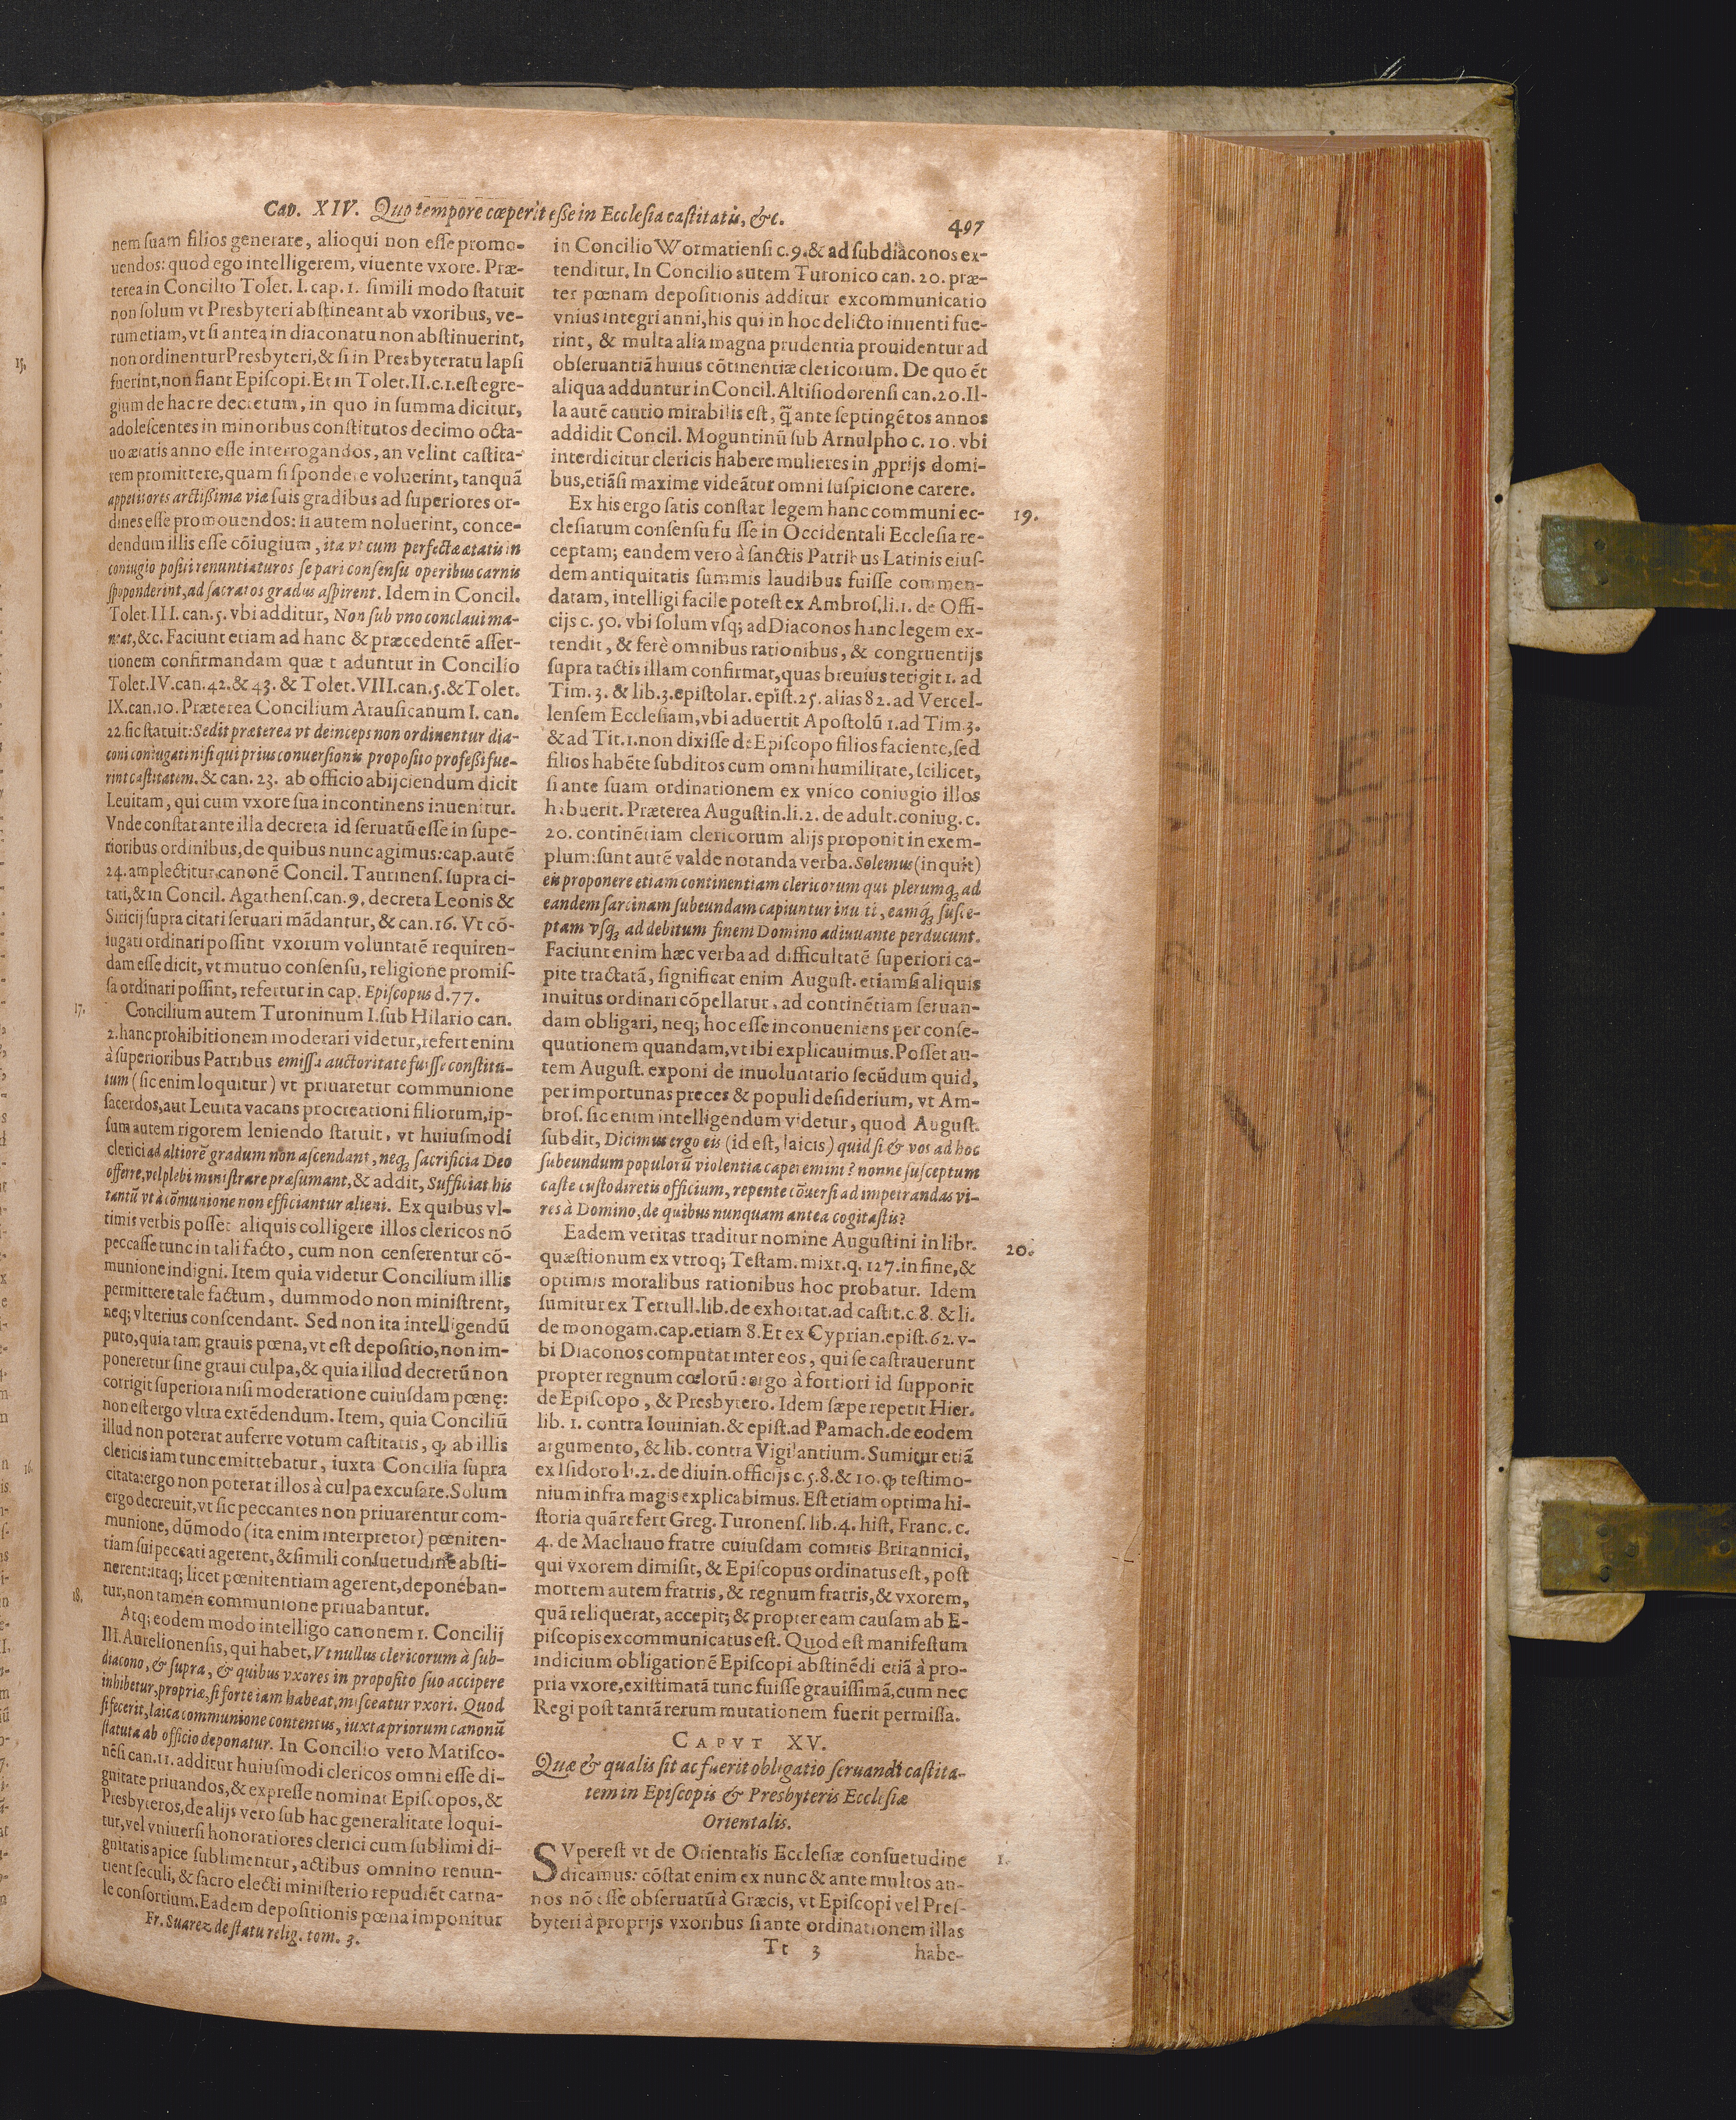 Cap. XIV. Quo tempore cœperit esse in Ecclesia castitatis, &c.
497
nem suam filios generare, alioqui non esse promo-
uendos: quod ego intelligerem, viuente vxore. Præ-
terea in Concilio Tolet. I. cap. 1. simili modo statuit
non solum vt Presbyteri abstineant ab vxoribus, ve-
rum etiam, vt si antea in diaconatu non abstinuerint,
non ordinentur Presbyteri, & si in Presbyteratu lapsi
fuerint, non fiant Episcopi. Et in Tolet. II. c. 1. est egre-
gium de hac re decretum, in quo in summa dicitur,
adolescentes in minoribus constitutos decimo octa-
uo ætatis anno esse interrogandos, an velint castita-
tem promittere, quam si spondere voluerint, tanquã
appetitores arctißimæ viæ suis gradibus ad superiores or-
dines esse promouendos: si autem noluerint, conce-
dendum illis esse cõiugium, ita vt cum perfectæ ætatis in
coniugio positi renuntiaturos se pari consensu operibus carnis
spoponderint, ad sacratos gradus aspirent. Idem in Concil.
Tolet. III. can. 5. vbi additur, Non sub vno conclaui ma-
neat, &c. Faciunt etiam ad hanc & præcedentẽ asser-
tionem confirmandam quæ t aduntur in Concilio
Tolet. IV. can. 42. & 43. & Tolet. VIII. can. 5. & Tolet.
IX. can. 10. Præterea Concilium Arausicanum I. can.
22. sic statuit: Sedit præterea vt deinceps non ordinentur dia-
coni coniugati nisi qui prius conuersionis proposito profeßi fue-
rint castitatem. & can. 23. ab officio abijciendum dicit
Leuitam, qui cum vxore sua incontinens inuenitur.
Vnde constat ante illa decreta id seruatũ esse in supe-
rioribus ordinibus, de quibus nunc agimus: cap. autẽ
24. amplectitur canonẽ Concil. Taurinens. supra ci-
tati, & in Concil. Agathens. can. 9. decreta Leonis &
Siricij supra citati seruari mãdantur, & can. 16. Vt cõ-
iugati ordinari possint vxorum voluntatẽ requiren-
dam esse dicit, vt mutuo consensu, religione promis-
sa ordinari possint, refertur in cap. Episcopus d. 77.
17.
Concilium autem Turoninum I. sub Hilario can.
2. hanc prohibitionem moderari videtur, refert enim
à superioribus Patribus emissa auctoritate fuisse constitu-
tum (sic enim loquitur) vt priuaretur communione
sacerdos, aut Leuita vacans procreationi filiorum, ip-
sum autem rigorem leniendo statuit, vt huiusmodi
clerici ad altiorẽ gradum non ascendant, neq; sacrificia Deo
offerre, vel plebi ministrare præsumant, & addit, Sufficiat his
tantũ vt à cõmunione non efficiantur alieni. Ex quibus vl-
timis verbis posset aliquis colligere illos clericos nõ
peccasse tunc in tali facto, cum non censerentur cõ-
munione indigni. Item quia videtur Concilium illis
permittere tale factum, dummodo non ministrent,
neq; vlterius conscendant. Sed non ita intelligendũ
puto, quia tam grauis pœna, vt est depositio, non im-
poneretur sine graui culpa, & quia illud decretũ non
corrigit superiora nisi moderatione cuiusdam pœnę:
non est ergo vltra extẽdendum. Item, quia Conciliũ
illud non poterat auferre votum castitatis, ꝙ ab illis
clericis iam tunc emittebatur, iuxta Concilia supra
citata: ergo non poterat illos à culpa excusare. Solum
ergo decreuit, vt sic peccantes non priuarentur com-
munione, dũmodo (ita enim interpretor) pœniten-
tiam sui peccati agerent, & simili consuetudine absti-
nerent: itaq; licet pœnitentiam agerent, deponẽban-
tur, non tamen communione priuabantur.
18.
Atq; eodem modo intelligo canonem 1. Concilij
III. Aurelionensis, qui habet, Vt nullus clericorum à sub-
diacono, & supra, & quibus vxores in proposito suo accipere
inhibetur, propriæ, si forte iam habeat, misceatur vxori. Quod
si fecerit, laica communione contentus, iuxta priorum canonũ
statuta ab officio deponatur. In Concilio vero Matisco-
nẽsi can. 11. additur huiusmodi clericos omni esse di-
gnitate priuandos, & expresse nominat Episcopos, &
Presbyteros, de alijs vero sub hac generalitate loqui-
tur, vel vniuersi honoratiores clerici cum sublimi di-
gnitatis apice sublimentur, actibus omnino renun-
tient seculi, & sacro electi ministerio repudiẽt carna-
le consortium. Eadem depositionis pœna imponitur
Fr. Suarez de statu relig. tom. 3.
in Concilio Wormatiensi c. 9. & ad subdiaconos ex-
tenditur. In Concilio autem Turonico can. 20. præ-
ter pœnam depositionis additur excommunicatio
vnius integri anni, his qui in hoc delicto inuenti fue-
rint, & multa alia magna prudentia prouidentur ad
obseruantiã huius cõtinentiæ clericorum. De quo ẽt
aliqua adduntur in Concil. Altisiodorensi can. 20. Il-
la autẽ cautio mirabilis est, q̃ ante septingẽtos annos
addidit Concil. Moguntinũ sub Arnulpho c. 10. vbi
interdicitur clericis habere mulieres in ꝓprijs domi-
bus, etiãsi maxime videãtur omni suspicione carere.
19.
Ex his ergo satis constat legem hanc communi ec-
clesiarum consensu fu sse in Occidentali Ecclesia re-
ceptam; eandem vero à sanctis Patribus Latinis eius-
dem antiquitatis summis laudibus fuisse commen-
datam, intelligi facile potest ex Ambros. li. 1. de Offi-
cijs c. 50. vbi solum vsq; ad Diaconos hanc legem ex-
tendit, & ferè omnibus rationibus, & congruentijs
supra tactis illam confirmat, quas breuius tetigit 1. ad
Tim. 3. & lib. 3. epistolar. epist. 25. alias 82. ad Vercel-
lensem Ecclesiam, vbi aduertit Apostolũ 1. ad Tim. 3.
& ad Tit. 1. non dixisse de Episcopo filios faciente, sed
filios habẽte subditos cum omni humilitate, scilicet,
si ante suam ordinationem ex vnico coniugio illos
habuerit. Præterea Augustin. li. 2. de adult. coniug. c.
20. continẽtiam clericorum alijs proponit in exem-
plum: sunt autẽ valde notanda verba. Solemus (inquit)
eis proponere etiam continentiam clericorum qui plerumq; ad
eandem sarcinam subeundam capiuntur inuiti, eamq; susce-
ptam vsq; ad debitum finem Domino adiuuante perducunt.
Faciunt enim hæc verba ad difficultatẽ superiori ca-
pite tractatã, significat enim August. etiamsi aliquis
inuitus ordinari cõpellatur, ad continẽtiam seruan-
dam obligari, neq; hoc esse inconueniens per conse-
quutionem quandam, vt ibi explicauimus. Posset au-
tem August. exponi de inuoluntario secũdum quid,
per importunas preces & populi desiderium, vt Am-
bros. sic enim intelligendum videtur, quod August.
subdit, Dicimus ergo eis (id est, laicis) quid si & vos ad hoc
subeundum populorũ violentia caperemini? nonne susceptum
caste custodiretis officium, repente cõuersi ad impetrandas vi-
res à Domino, de quibus nunquam antea cogitastis?
20.
Eadem veritas traditur nomine Augustini in libr.
quæstionum ex vtroq; Testam. mixt. q. 127. in fine, &
optimis moralibus rationibus hoc probatur. Idem
sumitur ex Tertull. lib. de exhortat. ad castit. c. 8. & li.
de monogam. cap. etiam 8. Et ex Cyprian. epist. 62. v-
bi Diaconos computat inter eos, qui se castrauerunt
propter regnum cœlorũ: ergo à fortiori id supponit
de Episcopo, & Presbytero. Idem sæpe repetit Hier.
lib. 1. contra Iouinian. & epist. ad Pamach. de eodem
argumento, & lib. contra Vigilantium. Sumitur etiã
ex Isidoro li. 2. de diuin. officijs c. 5. 8. & 10. ꝙ testimo-
nium infra magis explicabimus. Est etiam optima hi-
storia quã refert Greg. Turonens. lib. 4. hist. Franc. c.
4. de Machauo fratre cuiusdam comitis Britannici,
qui vxorem dimisit, & Episcopus ordinatus est, post
mortem autem fratris, & regnum fratris, & vxorem,
quã reliquerat, accepit; & propter eam causam ab E-
piscopis excommunicatus est. Quod est manifestum
indicium obligationẽ Episcopi abstinẽdi etiã à pro-
pria vxore, existimatã tunc fuisse grauissimã, cum nec
Regi post tantã rerum mutationem fuerit permissa.
CAPVT XV.
Quæ & qualis sit ac fuerit obligatio seruandi castita-
tem in Episcopis & Presbyteris Ecclesiæ
Orientalis.
1.
SVperest vt de Orientalis Ecclesiæ consuetudine
dicamus: cõstat enim ex nunc & ante multos an-
nos nõ esse obseruatũ à Græcis, vt Episcopi vel Pres-
byteri à proprijs vxoribus si ante ordinationem illas
Tt 3
habe-